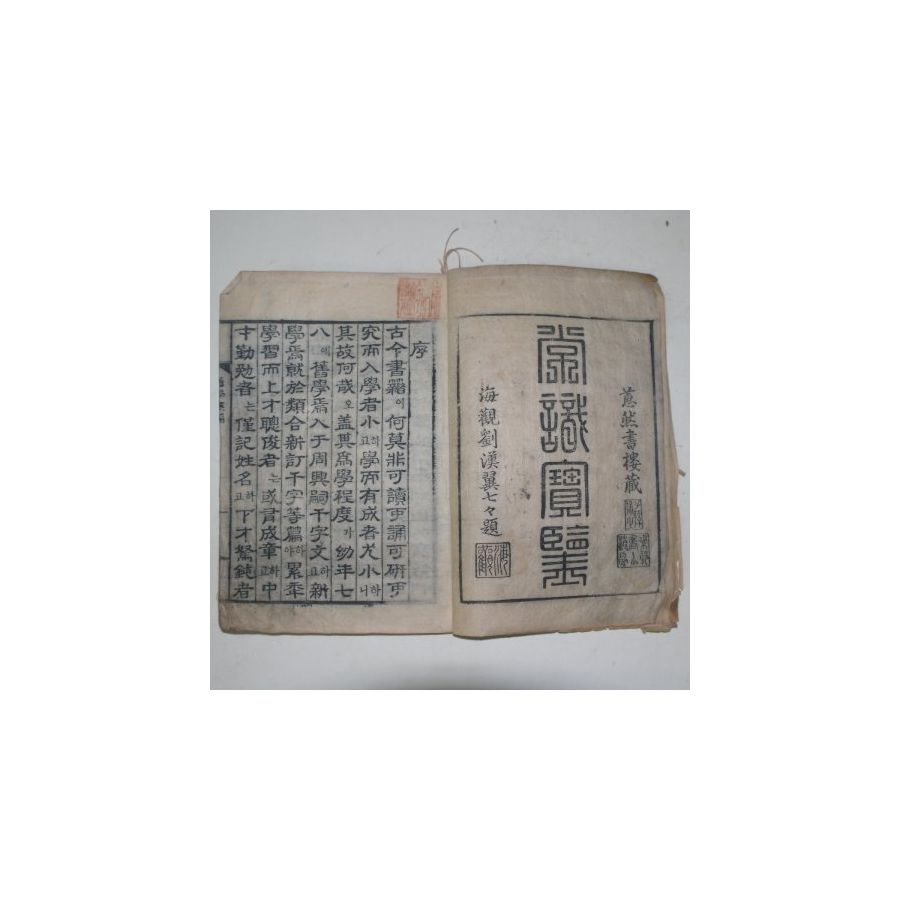 惹然書樓藏
常識寶鑒
海觀劉漢翼七々題
序
古今書籍이何莫非可讀可誦可研可
究而入學者小하고學而有成者尤小하니
其故何哉오盖其爲學程度가幼年七
八에舊學焉入于周興嗣千字文하고新
學焉就於類合新訂千字等篇하야累年
學習而上才聰俊者는遂言成章하고中
才勤勉者는僅記姓名하고下才駑鈍者